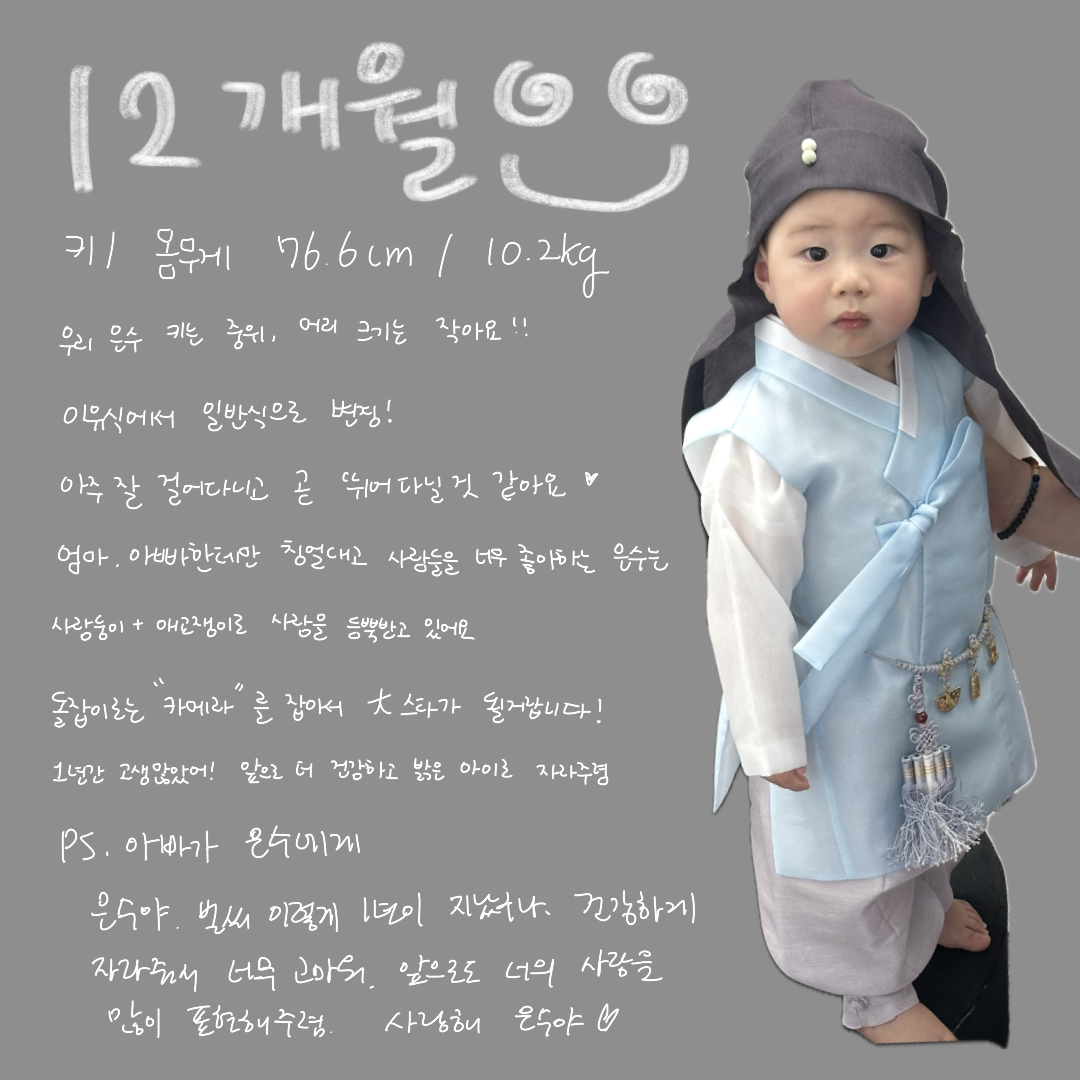 12개월
키 / 몸무게 76.6cm / 10.2kg
우리 은수 키는 중위, 머리 크기는 작아요!!
이유식에서 일반식으로 변경!
아주 잘 걸어다니고 곧 뛰어다닐것 같아요 ♥
엄마, 아빠한테만 칭얼대고 사람들을 너무 좋아하는 은수는
사랑둥이 + 애교쟁이로 사람을 듬뿍받고 있어요
돌잡이로는 "카메라"를 잡아서 大스타가 될거랍니다!
1년간 고생많았어! 앞으로 더 건강하고 밝은 아이로 자라주렴
PS. 아빠가 은수에게
은수야. 벌써 이렇게 1년이 지났구나. 건강하게
자라줘서 너무 고마워. 앞으로도 너의 사랑을
많이 표현해주렴. 사랑해 은수야 ♡